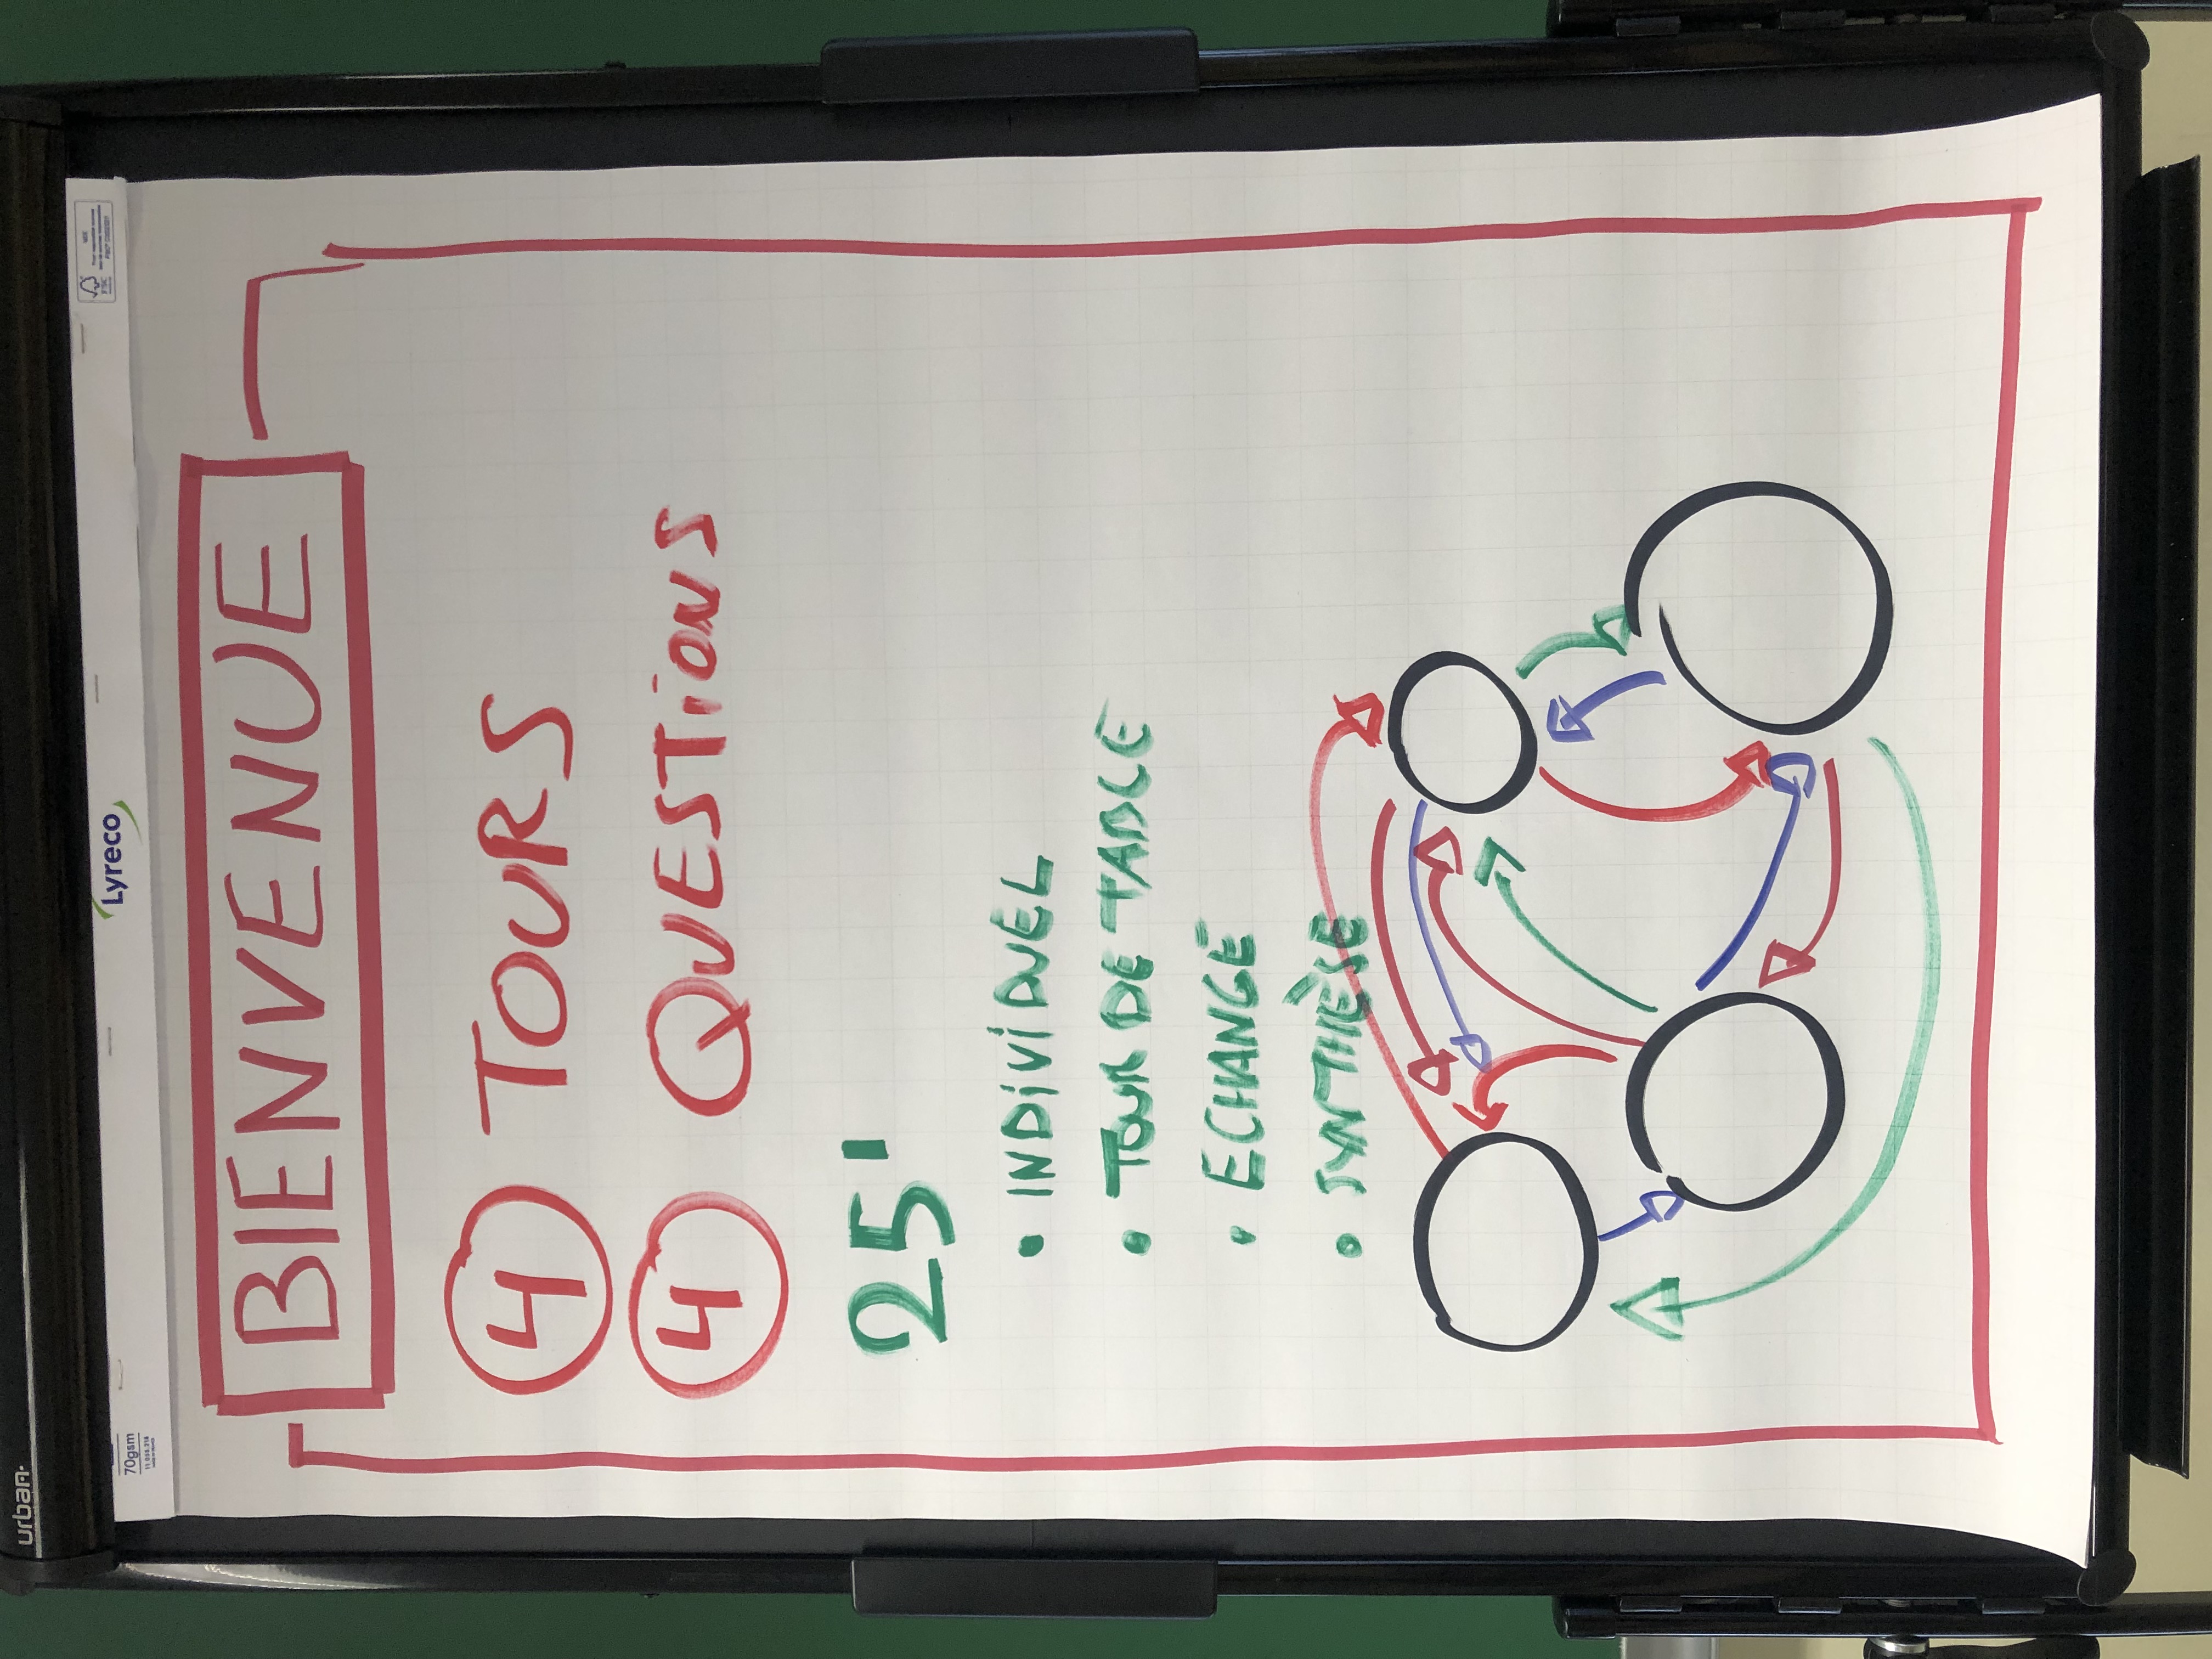 urban.
Lyreco
70gsm
FSC
BIENVENUE
4 TOURS
4 QUESTIONS
25'
• INDIVIDUEL
• TOUR DE TABLE
• ECHANGE
• SYNTHÈSE